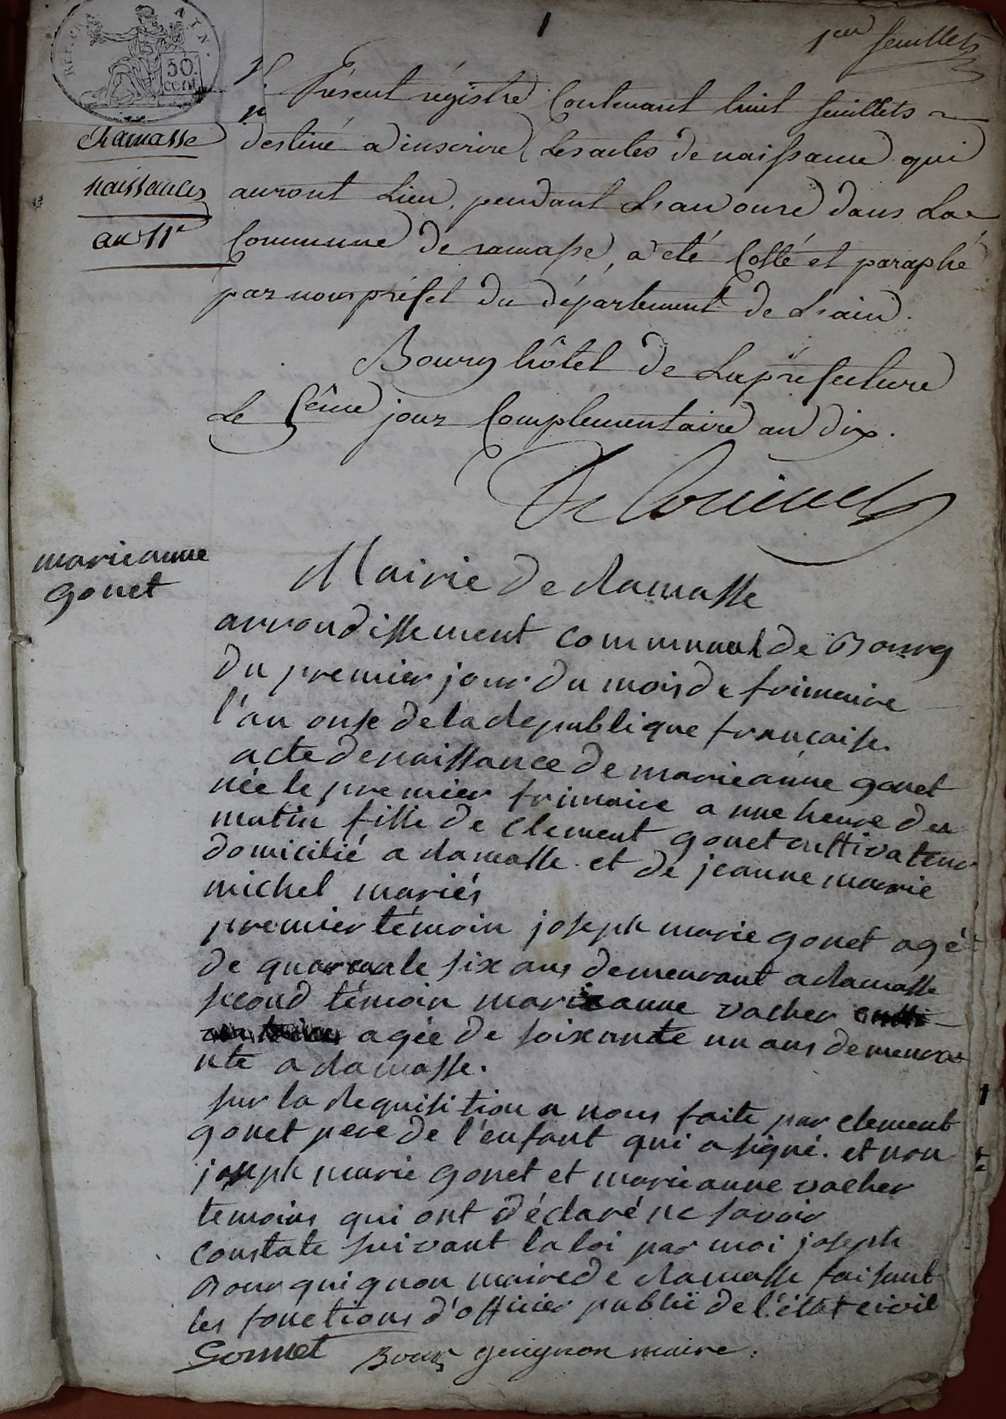 1
1er feuillet
REP. FRA
AIN.
50
CENT
Ramasse
naissances
an 11e
Présent régistre Contenant huit feuillets
destiné a inscrire Les actes de naissance qui
auront Lieu, pendant L'an onze dans La
Commune de ramasse, a été Cotté et paraphé
par nous préfet du département de L'ain.
Bourg hôtel de La préfecture
Le 5ème jour Complementaire an dix.
marieanne
gonet
Mairie de Ramasse
arrondissement communal de Bourg
du premier jour du mois de frimaire
l'an onse de la Republique francaise.
acte de naissance de marieanne gonet
née le premier frimaire a une heure du
matin fille de Clement gonet cultivateur
domicilié a Ramasse. et de jeanne marie
michel mariés
premier témoin joseph marie gonet agé
de quarante six ans demeurant a Ramasse
second témoin marieanne vacher
agée de soixante un ans demeura
nte a Ramasse.
sur la Requisition a nous faite par clement
gonet pere de l'enfant qui a signé. et non
joseph marie gonet et marieanne vacher
temoins qui ont déclaré ne savoir
constaté suivant la loi par moi joseph
Bourguignon maire de Ramasse faisant
les fonctions d'officier public de l'état civil
Gonnet Bourguignon maire.